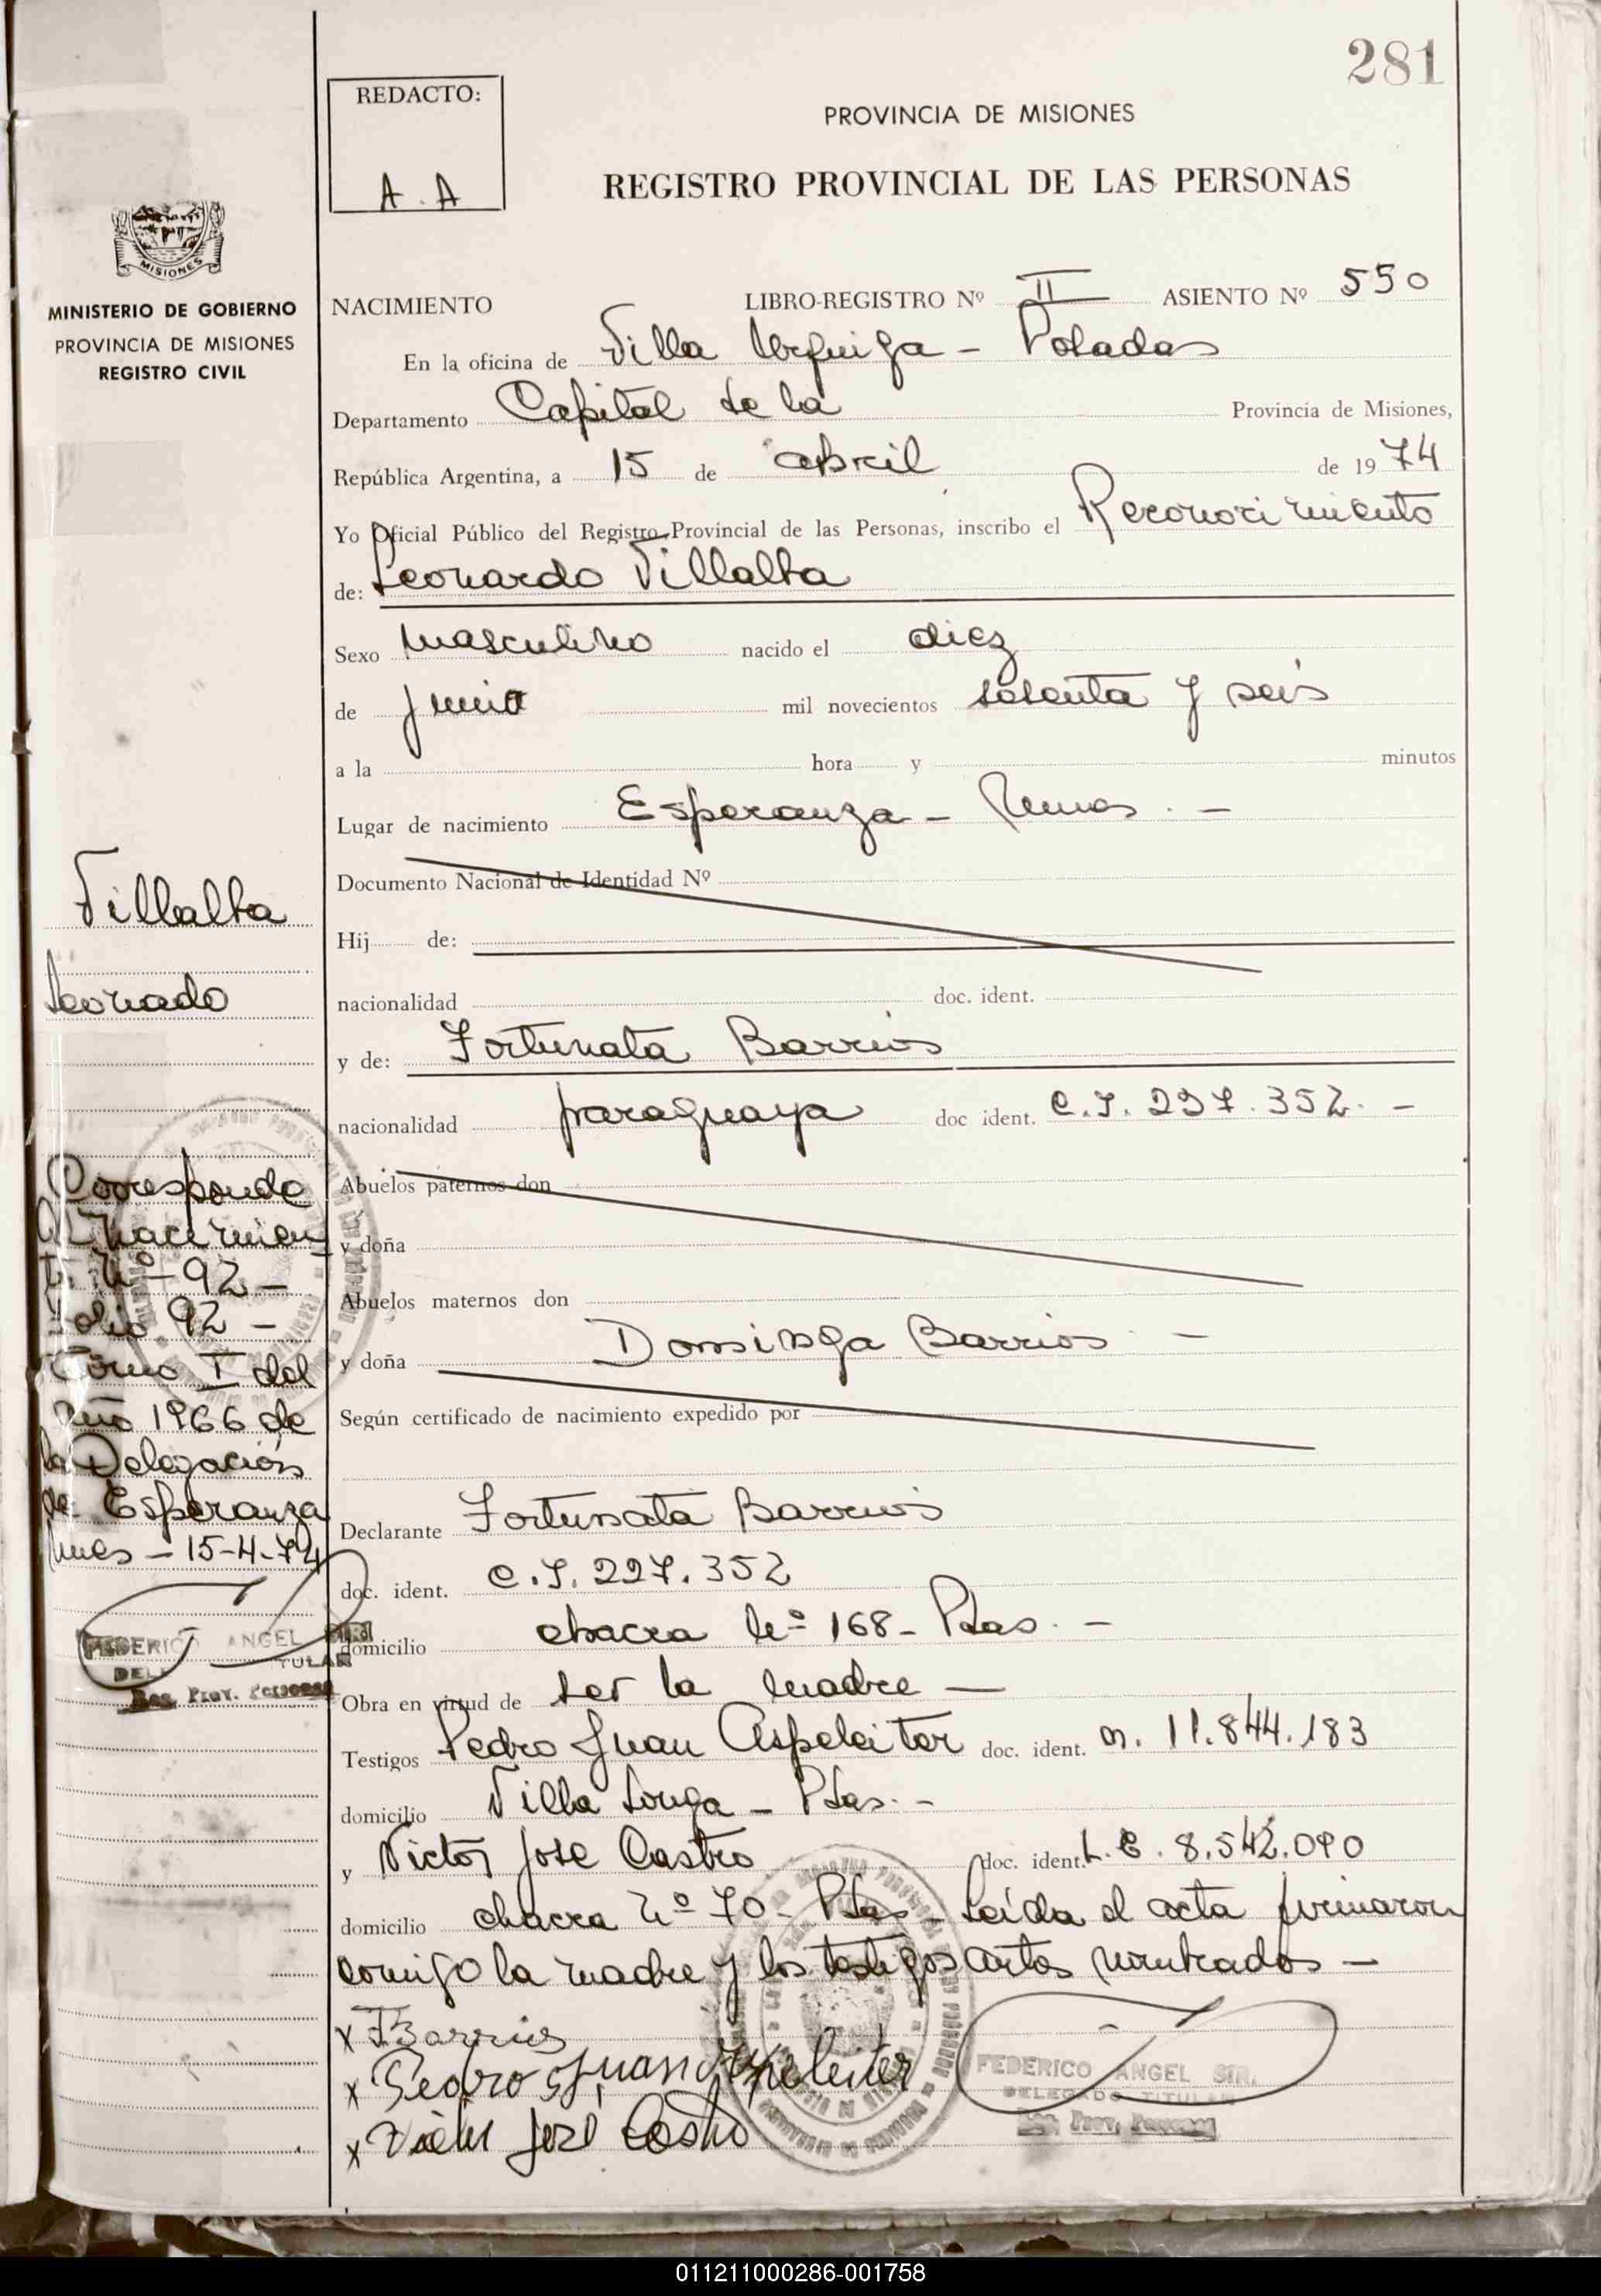 281
REDACTO:
A. A
PROVINCIA DE MISIONES
REGISTRO PROVINCIAL DE LAS PERSONAS
MISIONES
MINISTERIO DE GOBIERNO
PROVINCIA DE MISIONES
REGISTRO CIVIL
NACIMIENTO LIBRO-REGISTRO Nº II ASIENTO Nº 550
En la oficina de Villa Urquiza - Posadas
Departamento Capital de la Provincia de Misiones,
República Argentina, a 15 de abril de 1974
Yo Oficial Público del Registro Provincial de las Personas, inscribo el Reconocimiento
de: Leonardo Villalba
Sexo masculino nacido el diez
de junio mil novecientos sesenta y seis
a la hora y minutos
Lugar de nacimiento Esperanza - Mnes. -
Documento Nacional de Identidad Nº
Hij de:
nacionalidad doc. ident.
y de: Fortunata Barrios
nacionalidad paraguaya doc ident. C.I. 237.352. -
Abuelos paternos don
y doña
Abuelos maternos don
y doña Dominga Barrios -
Según certificado de nacimiento expedido por
Declarante Fortunata Barrios
doc. ident. C.I. 227.352
domicilio chacra Nº 168 - Pdas. -
Obra en virtud de ser la madre -
Testigos Pedro Juan Aspeleiter doc. ident. M. 11.844.183
domicilio Villa Longa - Pdas. -
y Victor Jose Castro doc. ident. L.E. 8.542.090
domicilio chacra Nº 70 - Pdas - Leída el acta firmaron
comigo la madre y los testigos antes nombrados -
x F Barrios
x Pedro Juan Aspeleiter
x Victor José Castro
FEDERICO ANGEL
DELEGADO TITULAR
Reg. Prov. Personas
Villalba
Leonado
Corresponde
al nacimien
to Nº 92 -
Folio 92 -
Tomo I del
Año 1966 de
la Delegación
de Esperanza
Mnes - 15-4-74
FEDERICO ANGEL
TITULAR
Reg. Prov. Personas
011211000286-001758